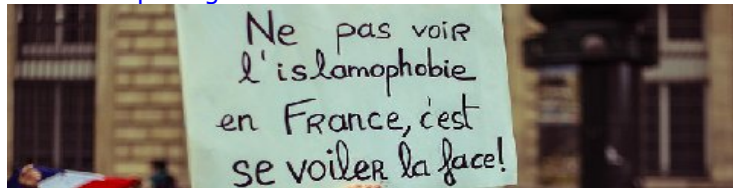 Ne pas voir
l'islamophobie
en France, c'est
se voiler la face!